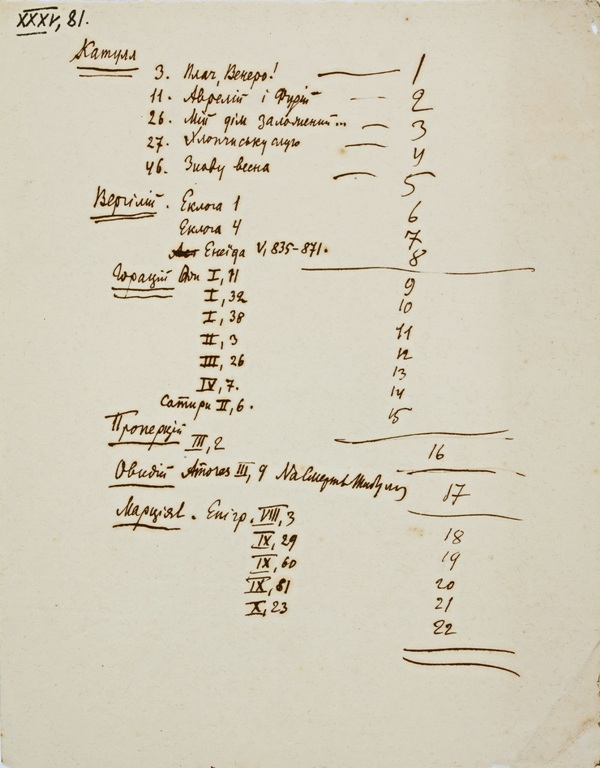 XXXV, 81.
Катулл
3. Плач, Венеро! 1
11. Аврелій і Фурій 2
26. Мій дім заложений... 3
27. Хлопчиську слуго 4
46. Знову весна 5
Вергілій. Еклога 1 6
Еклога 4 7
Енеїда V, 835-871. 8
Горацій Оди I, 11 9
I, 32 10
I, 38 11
II, 3 12
III, 26 13
IV, 7. 14
Сатири II, 6. 15
Проперцій
III, 2 16
Овидій Amores III, 9 На Смерть Тибулла 17
Марціял. Епігр. VIII, 3 18
IX, 29 19
IX, 60 20
IX, 81 21
X, 23 22